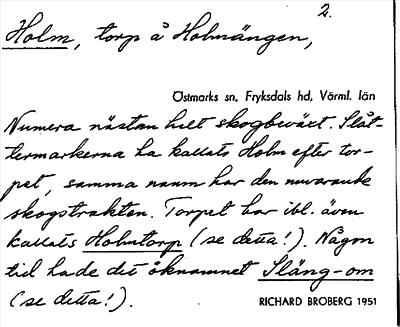 2.
Holm, torp å Holmängen,
Östmarks sn, Fryksdals hd, Värml. län
Numera nästan helt skogbeväxt. Slåt-
termarkerna ha kallats Holm efter tor-
pet, samma namn har den nuvarande
skogstrakten. Torpet har ibl. även
kallats Holmtorp (se detta!). Någon
tid hade det öknamnet Släng-om
(se detta!).
RICHARD BROBERG 1951